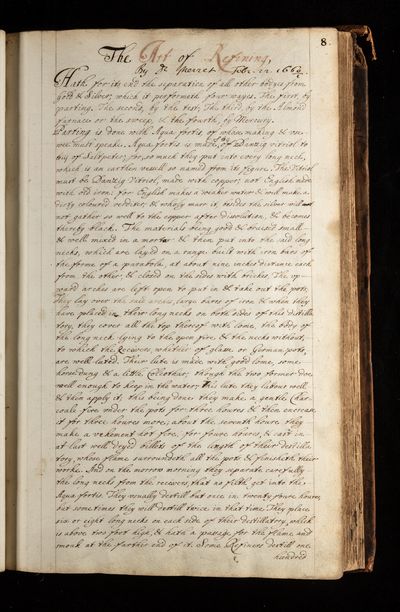 8.
The Art of Refining,
By Dr Merret Feb. 12. 1662.
Hath for its end the separation of all other bodyes from
Gold & Silver, which it performeth four wayes. The first, by
parting. The second, by the test, The third, by the Almond
furnace or the sweep, & the fourth, by Mercury.
Parting is done with Aqua fortis, of whose making & use
we must speake. Aqua fortis is made of Dantzig vitriol &
of Saltpeter, for so much they put into every long neck,
which is an earthen vessell so named from its figure. The Vitriol
must be Dantzig Vitriol, made with copper, not English made
with old iron: for English makes a weaker water & will make a
durty coloured verditer, & wholy marr it, besides the silver will not
not gather so well to the copper after dissolution, & becomes
thereby black. The materials being good & bruised small
& well mixed in a mortar, & then put into the said long
necks, which are layed on a range built with iron bars of
the forme of a parabola, at about nine inches distance each
from the other, & closed on the sides with bricks. The up-
ward arches are left open to put in & take out the pots.
They lay over the said arches large bares of iron & when they
have placed in their long necks on both sides of this distilla
tory, they cover all the top thereof with lome, the body of
the long neck lying to the open fire, & the necks without,
to which the Receivers, whether of glass or German pots,
are well luted. Their lute is made with good lome, some
horse dung & a little Colcothar; though the two former doe
well enough to keep in the water; This lute they labour well
& then apply it; this being done they make a gentle Char-
coale fire under the pots for three houres & then encrease
it for three houres more; about the seventh houre they
make a vehement hot fire, for foure houres, & cast in
at last well dryed billets of the length of their destilla
tory, whose flame surroundeth all the pots & finisheth their
worke. And on the morrow morning they separate carefully
the long necks from the receivers, that no filth get into the
Aqua fortis. They usually destill but once in twenty foure houres,
but sometimes they will destill twice in that time. They place
six or eight long necks on each side of their destillatory, which
is above two foot high, & hath a passage for the flame and
smoak at the further end of it. Some Refiners destill one
hundred